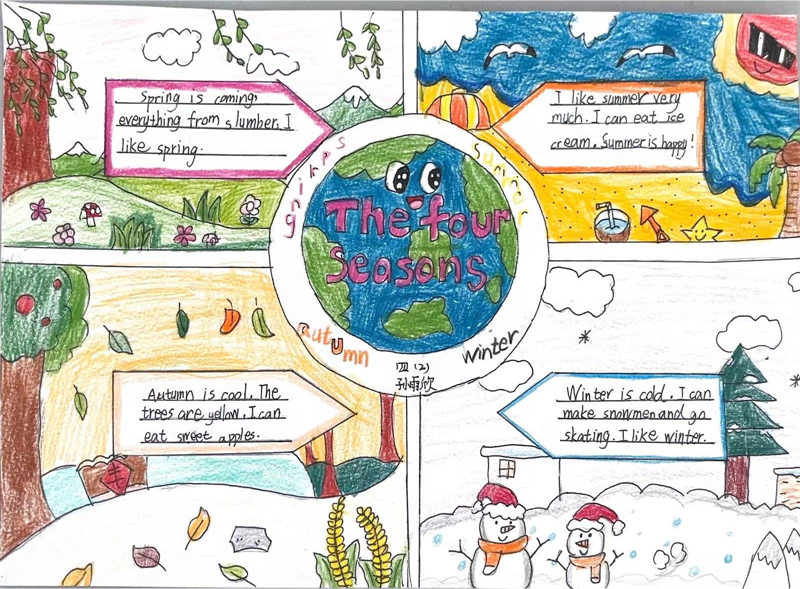 Spring is coming,
everything from slumber. I
like spring.
I like summer very
much. I can eat ice
cream. Summer is happy!
spring
summer
The four
Seasons
Autumn
winter
四(2)
孙雨欣
Autumn is cool. The
trees are yellow. I can
eat sweet apples.
Winter is cold. I can
make snowmen and go
skating. I like winter.